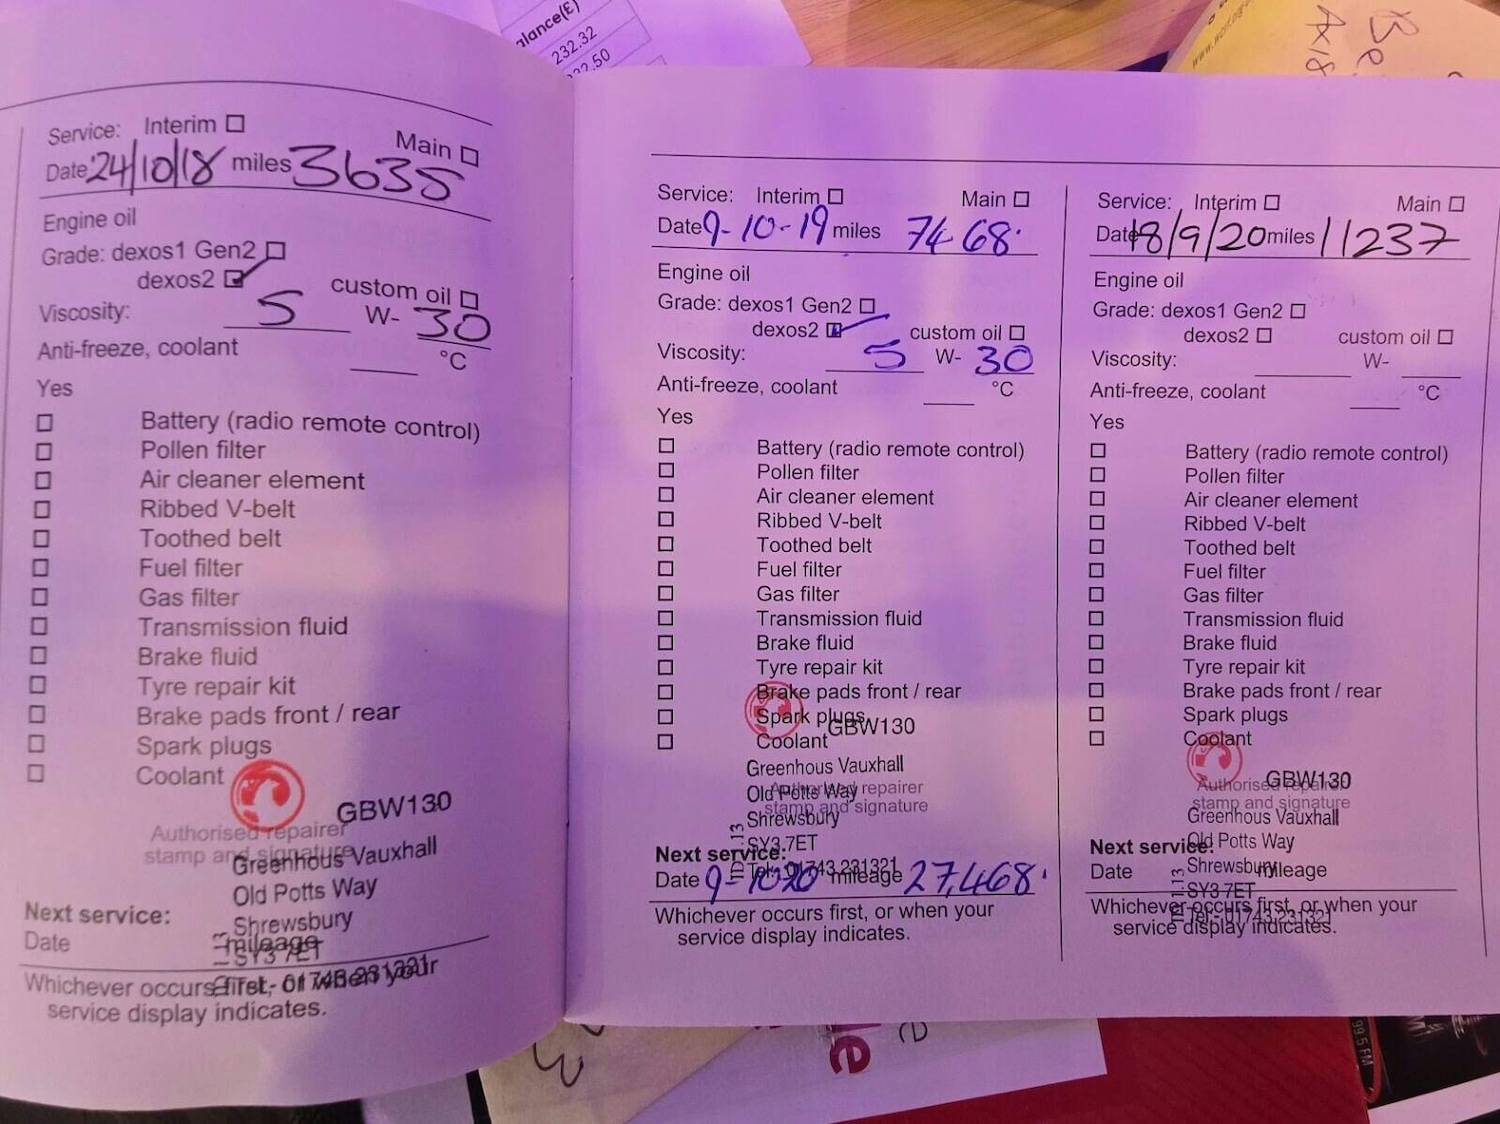 alance(£)
232.32
232.50
Be
Service: Interim ☐ Main ☐
Date 24/10/18 miles 3635
Engine oil
Grade: dexos1 Gen2 ☐
dexos2 ☑ custom oil ☐
Viscosity: 5 W- 30
Anti-freeze, coolant °C
Yes
☐ Battery (radio remote control)
☐ Pollen filter
☐ Air cleaner element
☐ Ribbed V-belt
☐ Toothed belt
☐ Fuel filter
☐ Gas filter
☐ Transmission fluid
☐ Brake fluid
☐ Tyre repair kit
☐ Brake pads front / rear
☐ Spark plugs
☐ Coolant
GBW130
Authorised repairer
stamp and signature
Greenhous Vauxhall
Old Potts Way
Shrewsbury
SY3 7ET
Tel:- 01743 231321
Next service:
Date mileage
Whichever occurs first, or when your
service display indicates.
Service: Interim ☐ Main ☐
Date 9-10-19 miles 7468.
Engine oil
Grade: dexos1 Gen2 ☐
dexos2 ☑ custom oil ☐
Viscosity: 5 W- 30
Anti-freeze, coolant °C
Yes
☐ Battery (radio remote control)
☐ Pollen filter
☐ Air cleaner element
☐ Ribbed V-belt
☐ Toothed belt
☐ Fuel filter
☐ Gas filter
☐ Transmission fluid
☐ Brake fluid
☐ Tyre repair kit
☐ Brake pads front / rear
☐ Spark plugs
☐ Coolant
GBW130
Greenhous Vauxhall
Authorised repairer
Old Potts Way
stamp and signature
Shrewsbury
SY3 7ET
Tel:- 01743 231321
Next service:
Date 9-10-20 mileage 27,468.
Whichever occurs first, or when your
service display indicates.
Service: Interim ☐ Main ☐
Date 18/9/20 miles 11237
Engine oil
Grade: dexos1 Gen2 ☐
dexos2 ☐ custom oil ☐
Viscosity: W-
Anti-freeze, coolant °C
Yes
☐ Battery (radio remote control)
☐ Pollen filter
☐ Air cleaner element
☐ Ribbed V-belt
☐ Toothed belt
☐ Fuel filter
☐ Gas filter
☐ Transmission fluid
☐ Brake fluid
☐ Tyre repair kit
☐ Brake pads front / rear
☐ Spark plugs
☐ Coolant
GBW130
Authorised repairer
stamp and signature
Greenhous Vauxhall
Old Potts Way
Shrewsbury
SY3 7ET
Tel:- 01743 231321
Next service:
Date mileage
Whichever occurs first, or when your
service display indicates.
99.5 FM